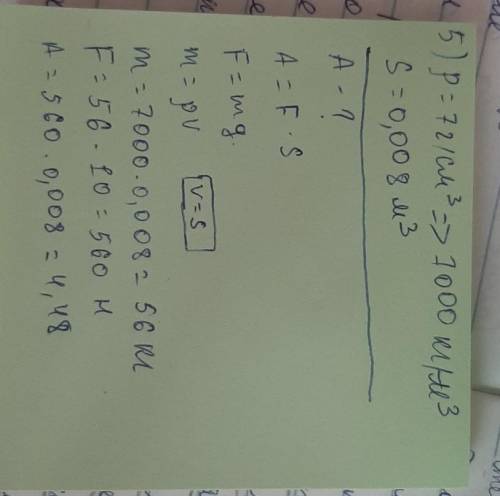 5) p = 7г/см³ => 7000 кг/м³
S = 0,008 м³
A - ?
A = F · S
F = mg.
m = pV
V = S
m = 7000 · 0,008 = 56 кг
F = 56 · 10 = 560 Н
A = 560 · 0,008 = 4,48